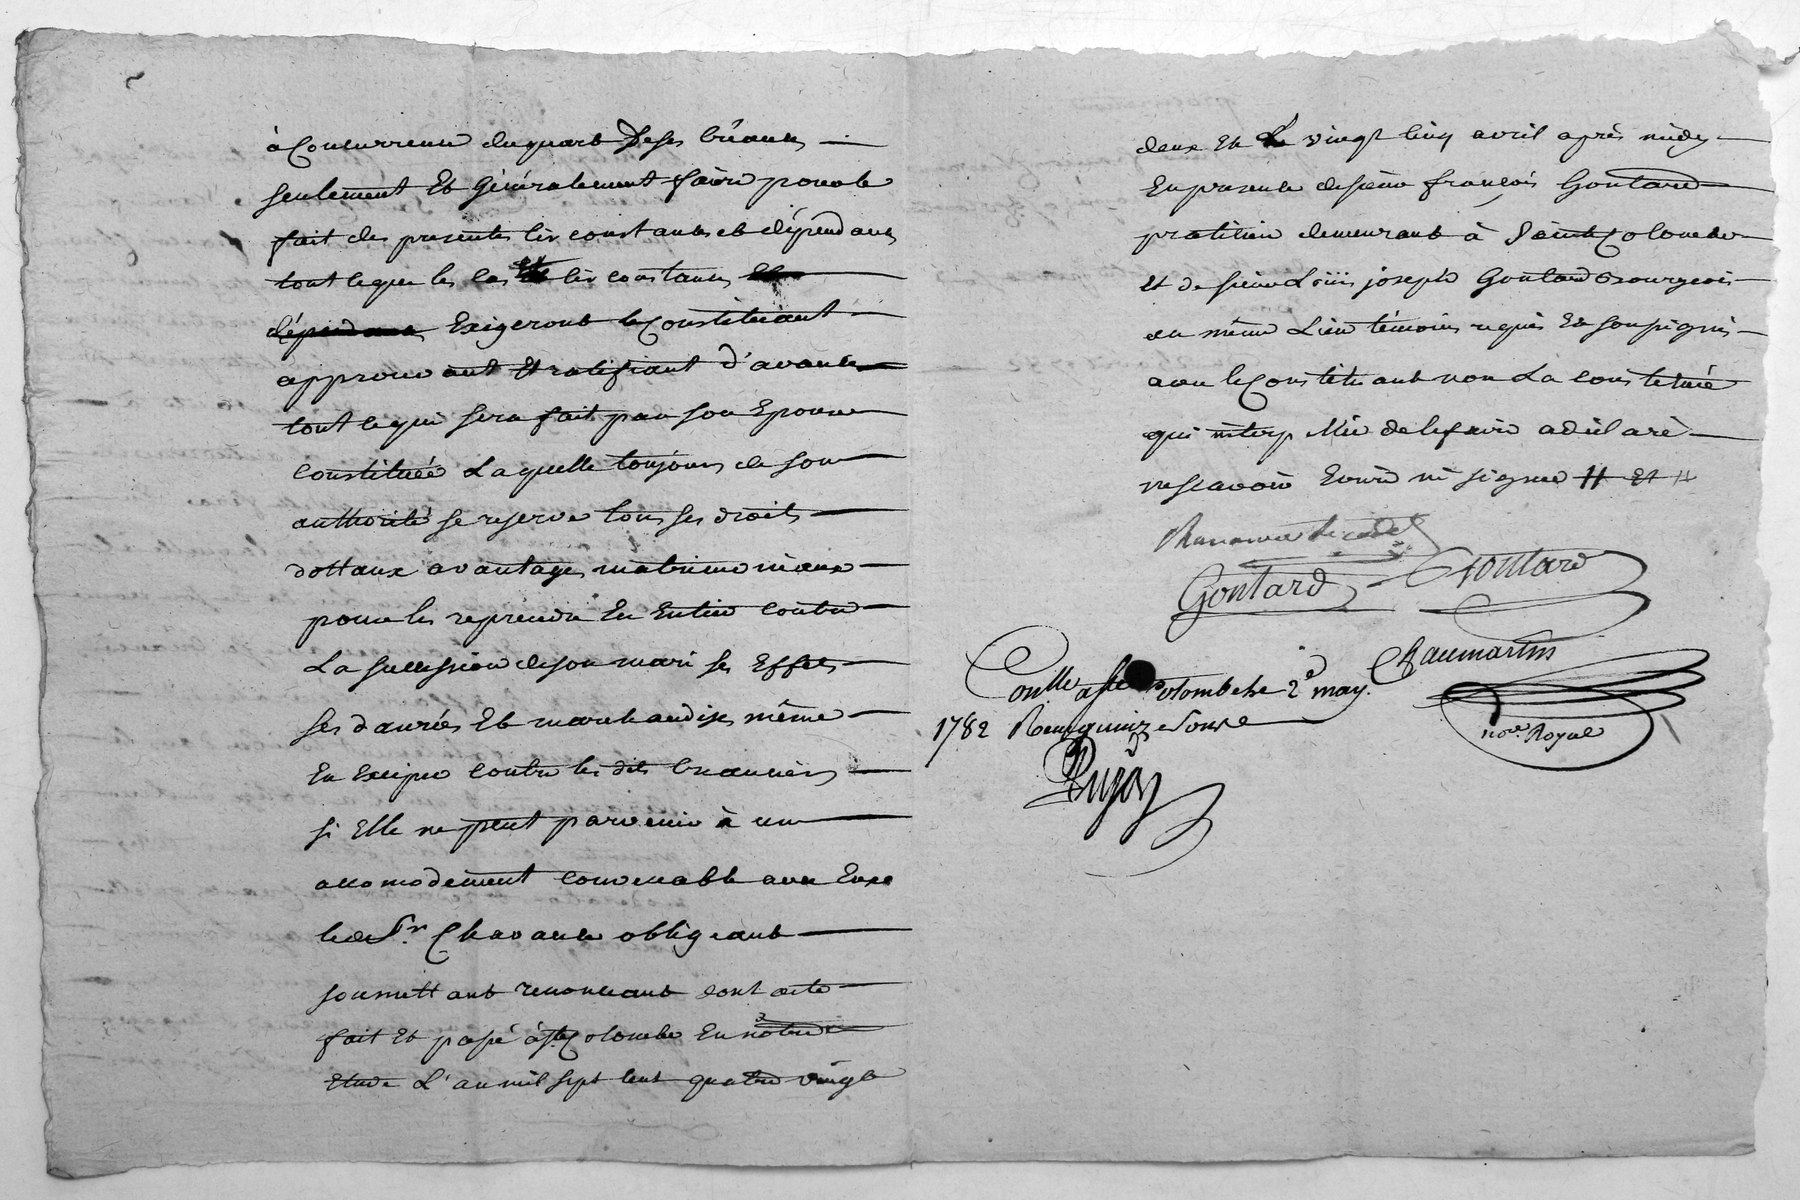 à Concurrence du quart de ses créances
seulement Et Généralement faire pour le
fait des presentes circonstances et dépendances
tout ce que les cas Et circonstances
dépendances Exigeront le Constituant
approuvant Et ratifiant d'avance
tout ce qui sera fait par son Epouse
Constituée Laquelle toujours de son
authorité se reserve tous ses droits
dottaux avantages matrimoniaux
pour les reprendre En Entier contre
La succession de son mari ses Effets
ses danrées Et marchandises même
En Exciper contre les dits creanciers
si Elle ne peut parvenir à un
accomodement convenable avec Eux
ledt Sr. Chavance obligeant
soumettant renonceant dont acte
fait Et passé à Ste Colombe En notre
Etude L'an mil sept cent quatre vingt
deux Et Le vingt cinq avril après midy
En presence de sieur françois Gontard
praticien demeurant à Sainte Colombe
et de sieur Loüis joseph Gontard Bourgeois
du même Lieu témoins requis Et soussignés
avec le Constituant non La constituée
qui interpellée de le faire a déclaré
ne scavoir Ecrire ni signer Et
Gontard Gontard
Chaumartin
Conllé a Ste Colombe le 2e may
1782 Reçu quinze sous
nore Royal